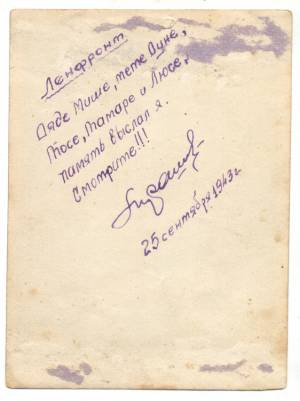 Ленфронт
Дяде Мише, тете Дуне,
Тосе, Тамаре и Люсе.
память выслал я.
Смотрите!!!
25 сентября 1943 г